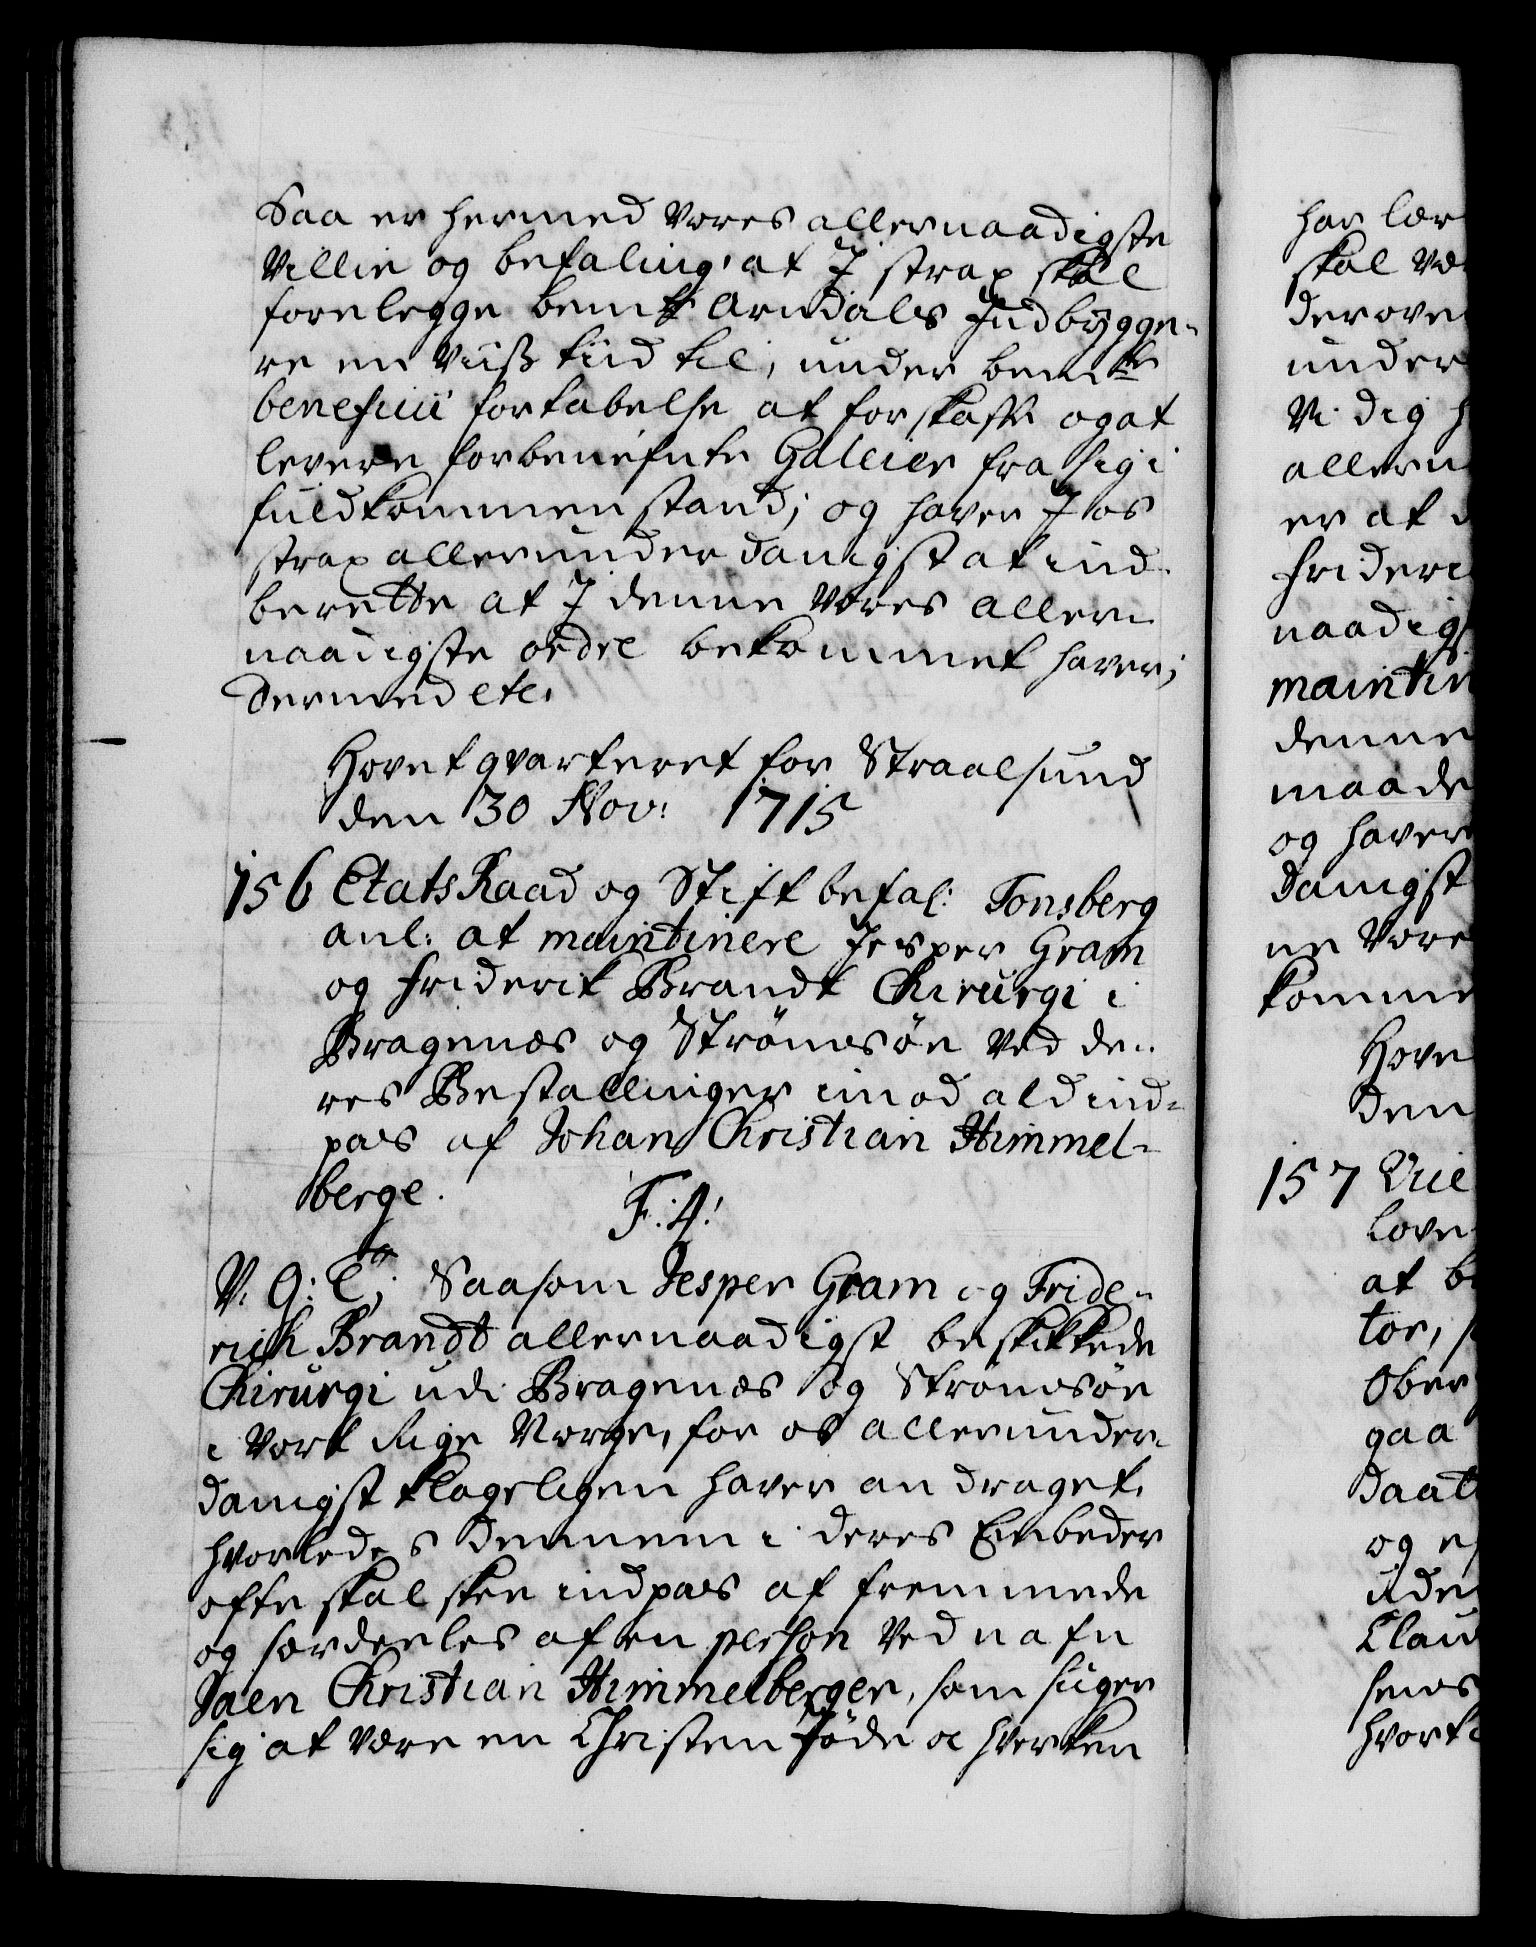 Saa er hermed Vores allernaadigste
Villie og befaling, at I strax skal
forelegge bemte Arndals Indbÿgge-
re en viiss tiid til, under bemte
beneficii fortabelse at forskaffe og at
levere forbenefnte Galleier fra sig i
fuldkommen stand; og haver I os
strax allerunderdanigst at ind-
berette at I denne Vores aller-
naadigste ordre bekommet haver;
Dermed etc.
Hovetqvarteret for Straalsund
den 30 Nov: 1715
156 Etats Raad og Stiftbefal: Tonsberg
anl: at maintinere Jesper Gram
og Friderik Brandt Chirurgi i
Bragenæs og Strömsöe ved de-
res Bestallinger imod ald ind-
pas af Johan Christian Himmel-
berge.
F: 4!
V. G: T: Saasom Jesper Gram og Fride-
rich Brandt allernaadigst beskikkede
Chirurgi udi Bragenæs og Strömsöe
i Vort Rige Norge, for os allerunder-
danigst klageligen haver andraget,
hvorledes dennem i deres Embeder
ofte skal skee indpas af fremmede
og særdeeles af en person ved nafn
Joen Christian Himmelberger, som siiger
sig at være en Christen Jöde oc hverken
har lær
skal væ
derove
under
Vi dig h
allern
er at d
Frideri
naadigs
maintin
denne
maade
og haver
danigst
ne Vore
komme
Hove
den
157
love
at b
tor,
Ober
gaa
daat
og
Clau
hvort